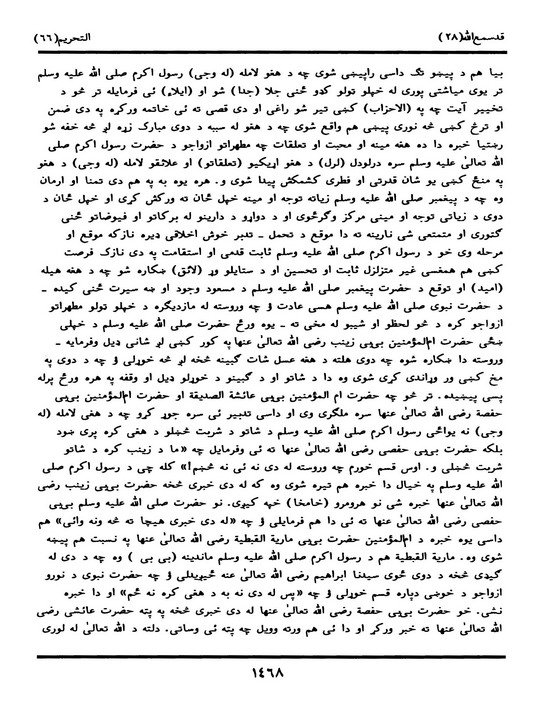 قدسمع الله(٢٨)
التحریم(٦٦)
بیا هم د پیښو تګ داسی راپیښی شوی چه د هغو لامله (له وجی) رسول اکرم صلی الله علیه وسلم
تر یوی میاشتی پوری له خپلو ټولو کډو ځنی جلا (جدا) شو او (ایلاء) ئی فرمایله تر څو د
تخییر آیت چه په (الاحزاب) کښی تیر شو راغی او دی قصی ته ئی خاتمه ورکړه په دی ضمن
او ترڅ کښی څه نوری پیښی هم واقع شوی چه د هغو له سببه د دوی مبارک زړه لږ څه خفه شو
رښتیا خبره دا ده هغه مینه او محبت او تعلقات چه مطهراتو ازواجو د حضرت رسول اکرم صلی
الله تعالیٰ علیه وسلم سره درلودل (لرل) د هغو اړیکیو (تعلقاتو) او علائقو لامله (له وجی) د هغو
په منځ کښی یو شان قدرتی او فطری کشمکش پیدا شوی و. هره یوه به په هم دی تمنا او ارمان
وه چه د پیغمبر صلی الله علیه وسلم زیاته توجه او مینه خپل ځان ته ورکش کړی او خپل ځان د
دوی د زیاتی توجه او مینی مرکز وګرځوی او د دواړو د دارینو له برکاتو او فیوضاتو ځنی
ګټوری او متمتعی شی نارینه ته دا موقع د تحمل ـ تدبر خوش اخلاقی ډیره نازکه موقع او
مرحله وی خو د رسول اکرم صلی الله علیه وسلم ثابت قدمی او استقامت په دی نازک فرصت
کښی هم همغسی غیر متزلزل ثابت او تحسین او د ستایلو وړ (لائق) ښکاره شو چه د هغه هیله
(امید) او توقع د حضرت پیغمبر صلی الله علیه وسلم د مسعود وجود او ښه سیرت ځنی کیده ـ
د حضرت نبوی صلی الله علیه وسلم هسی عادت ؤ چه وروسته له مازدیګره د خپلو ټولو مطهراتو
ازواجو کره د څو لحظو او شیبو له مخی ته ـ یوه ورځ حضرت صلی الله علیه وسلم د خپلی
ښځی حضرت ام المؤمنین بی‌بی زینب رضی الله تعالیٰ عنها په کور کښی لږ شانی ډیل وفرمایه ـ
وروسته دا ښکاره شوه چه دوی هلته د هغه عسل شات ګبینه څخه لږ څه خوړلی ؤ چه د دوی په
مخ کښی ور وړاندی کړی شوی وه دا د شاتو او د ګبینو د خوړلو ډیل او وقفه په هره ورځ پرله
پسی پیښیده. تر څو چه حضرت ام المؤمنین بی‌بی عائشة الصدیقة او حضرت ام‌المؤمنین بی‌بی
حفصة رضی الله تعالیٰ عنها سره ملګری وی او داسی تدبیر ئی سره جوړ کړو چه د هغی لامله (له
وجی) نه یواځی رسول اکرم صلی الله علیه وسلم د شاتو د شربت څښلو د هغی کره پری ښود
بلکه حضرت بی‌بی حفصی رضی الله تعالیٰ عنها ته ئی وفرمایل چه «ما د زینب کره د شاتو
شربت څښلی و. اوس قسم خورم چه وروسته له دی نه ئی نه څښم!» کله چی د رسول اکرم صلی
الله علیه وسلم په خیال دا خبره هم تیره شوی وه که له دی خبری څخه حضرت بی‌بی زینب رضی
الله تعالیٰ عنها خبره شی نو هرومرو (خامخا) خپه کیږی. نو حضرت صلی الله علیه وسلم بی‌بی
حفصی رضی الله تعالیٰ عنها ته ئی دا هم فرمایلی ؤ چه «له دی خبری هیچا ته څه ونه وائی» هم
داسی یوه خبره د ام‌المؤمنین حضرت بی‌بی ماریة القبطیة رضی الله تعالیٰ عنها په نسبت هم پیښه
شوی وه . ماریة القبطیة هم د رسول اکرم صلی الله علیه وسلم ماندینه (بی بی ) وه چه د دی له
ګیډی څخه د دوی ځوی سیدنا ابراهیم رضی الله تعالیٰ عنه څیږیدلی ؤ چه حضرت نبوی د نورو
ازواجو د خوښی دپاره قسم خوړلی ؤ چه «پس له دی نه به د هغی کره نه ځم» او دا خبره
نشی. خو حضرت بی‌بی حفصة رضی الله تعالیٰ عنها له دی خبری څخه په پټه حضرت عائشی رضی
الله تعالیٰ عنها ته خبر ورکړ او دا ئی هم ورته وویل چه پټه ئی وساتی. دلته د الله تعالیٰ له لوری
١٤٦٨